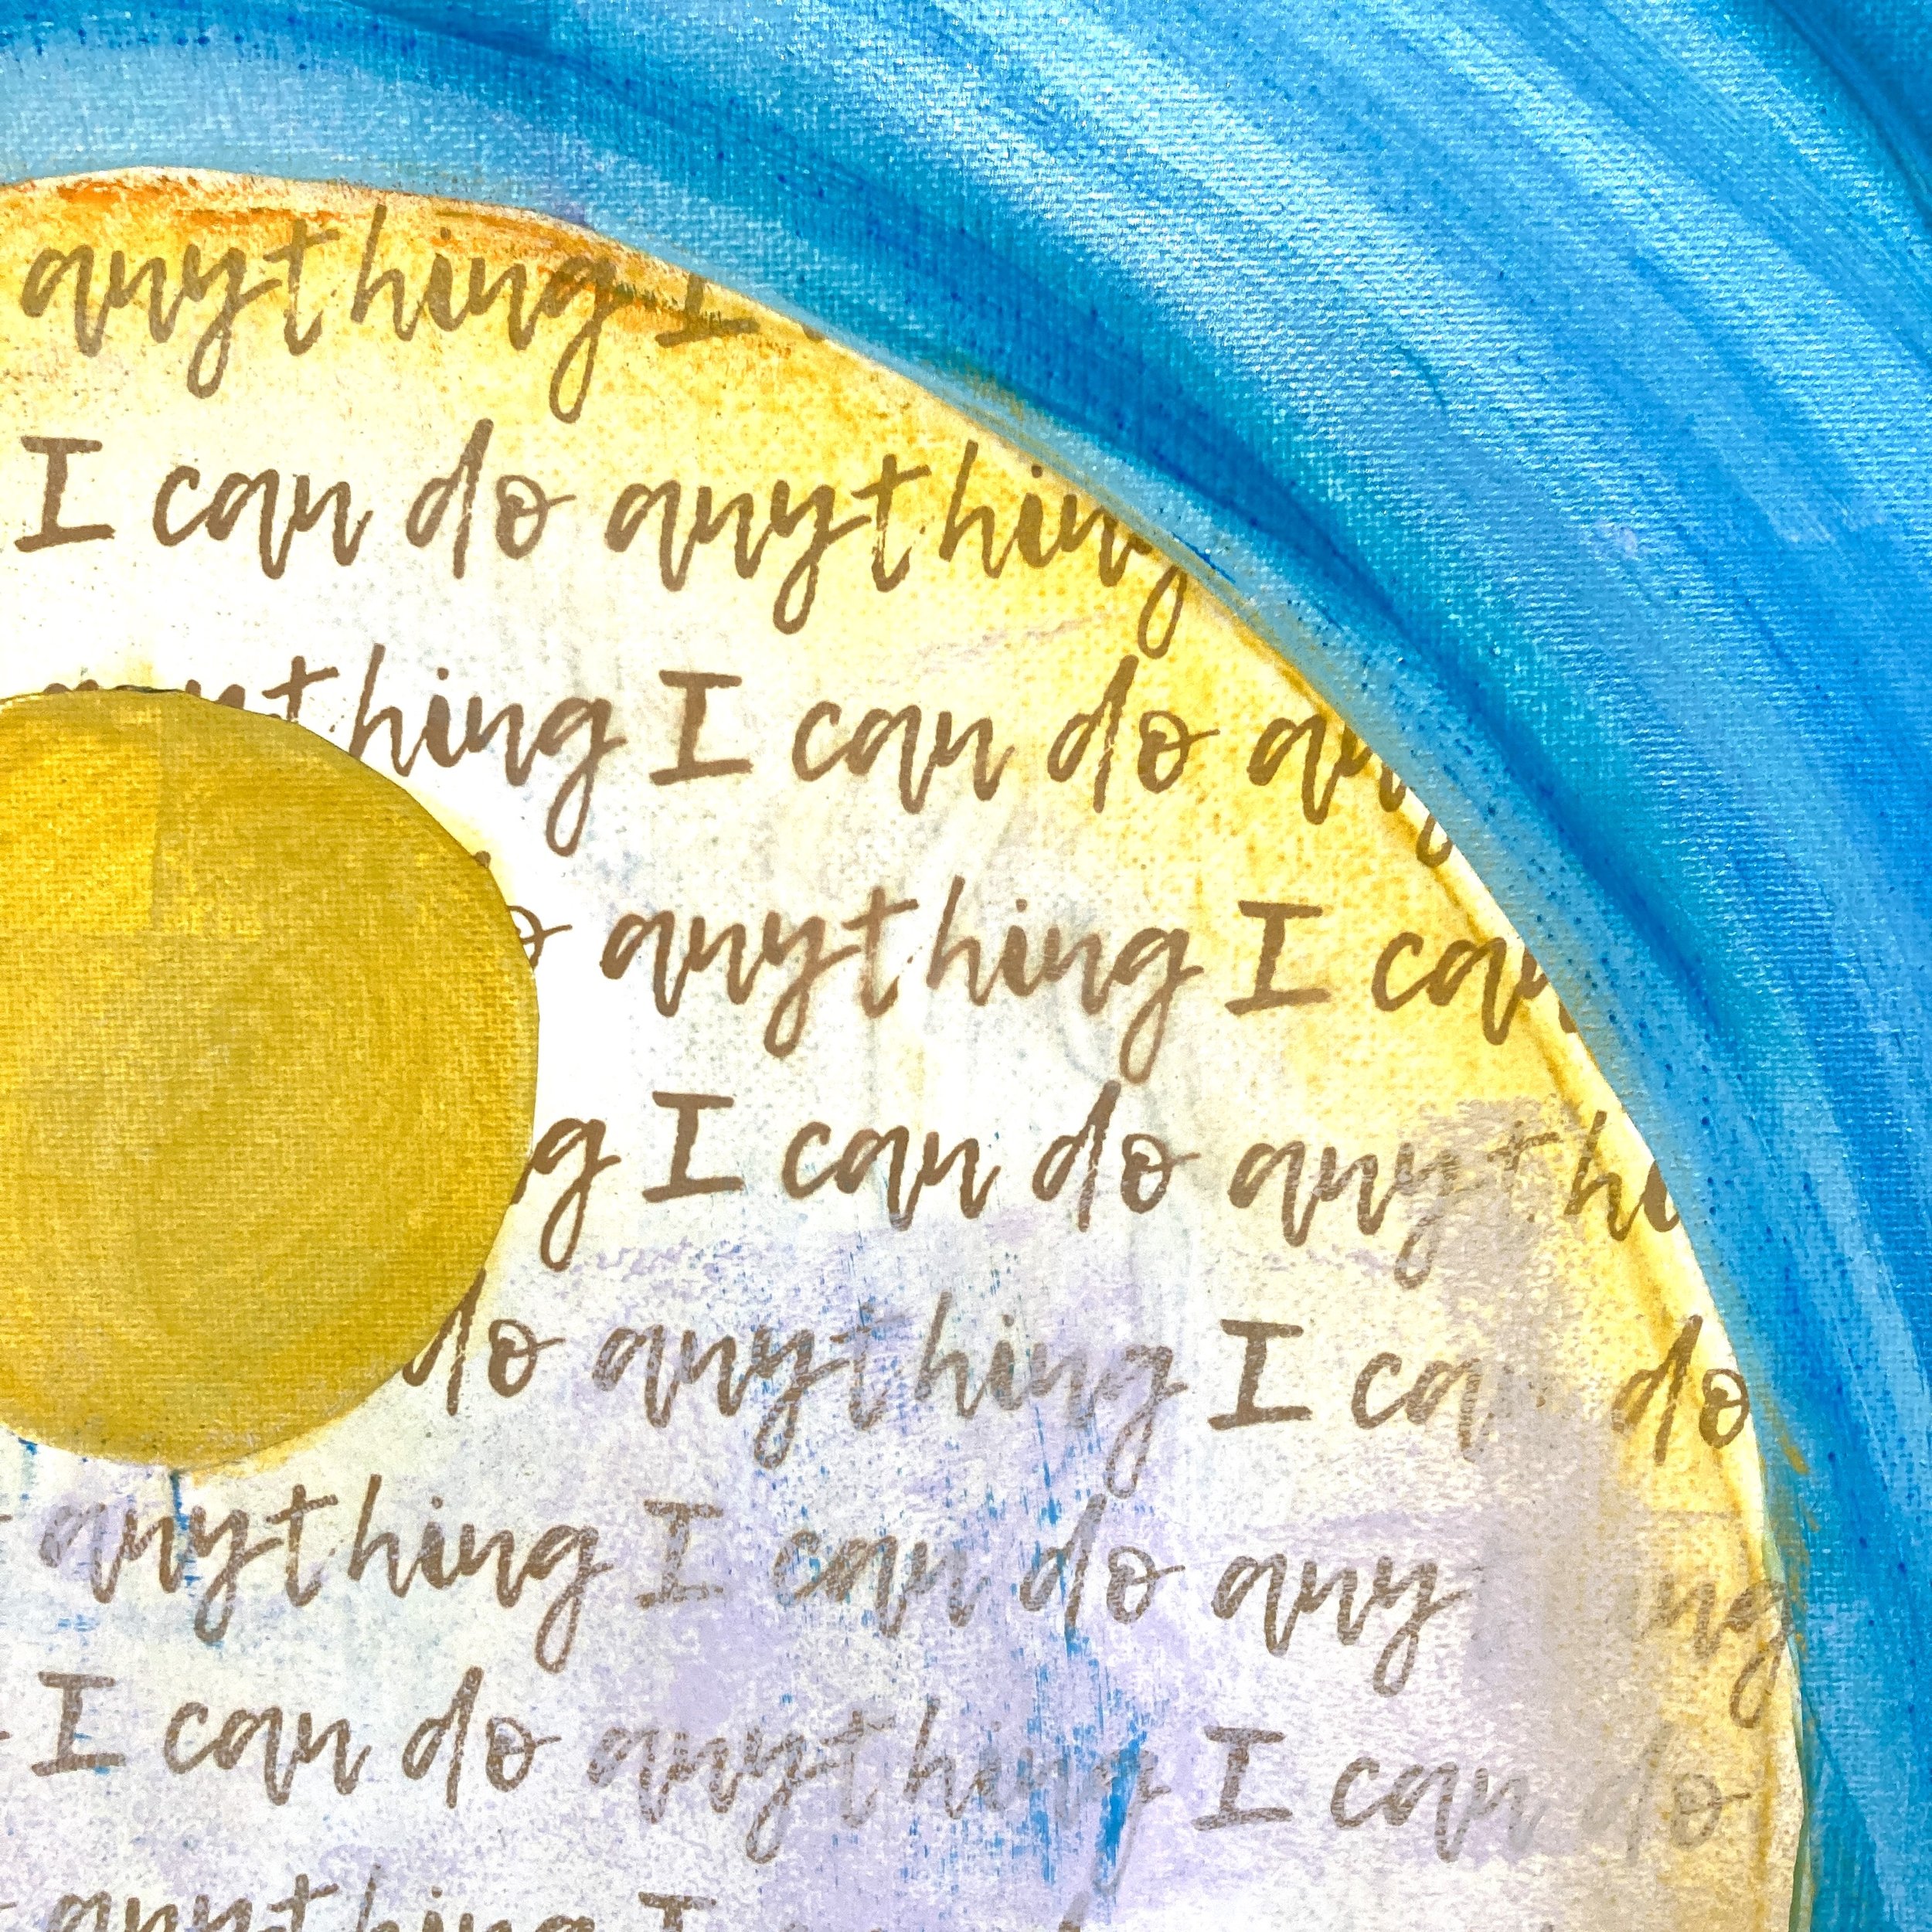 anything I
I can do anything
anything I can do any
do anything I can
g I can do anythi
do anything I can do
anything I can do any ng
I can do anything I can do
anything I can